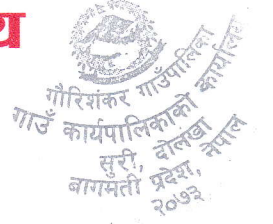 य
गौरिशंकर गाउँपालिका
गाउँ कार्यपालिकाको कार्यालय
सुरी, दोलखा
बागमती प्रदेश, नेपाल
२०७३